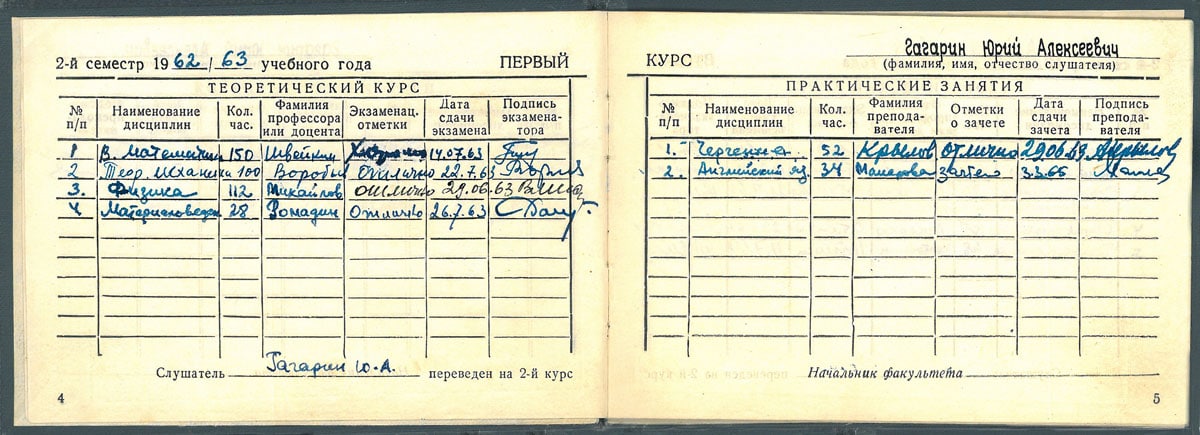 2-й семестр 1962/63 учебного года ПЕРВЫЙ
ТЕОРЕТИЧЕСКИЙ КУРС
№ п/п Наименование дисциплин Кол. час. Фамилия профессора или доцента Экзаменац. отметки Дата сдачи экзамена Подпись экзаменатора
1 В. Математика 150 Швейкин 14.07.63
2 Теор. механика 100 Воробьё отлично 22.7.63
3. Физика 112 Михайлов отлично 29.06.63
4 Материаловеден 28 отлично 26.7.63
Слушатель Гагарин Ю.А. переведен на 2-й курс
4
КУРС Гагарин Юрий Алексеевич
(фамилия, имя, отчество слушателя)
ПРАКТИЧЕСКИЕ ЗАНЯТИЯ
№ п/п Наименование дисциплин Кол. час. Фамилия преподавателя Отметки о зачете Дата сдачи зачета Подпись преподавателя
1. Черчение 52 Крылов отлично 29.06.63 Крылов
2. Английский яз. 34 зачтено
Начальник факультета
5